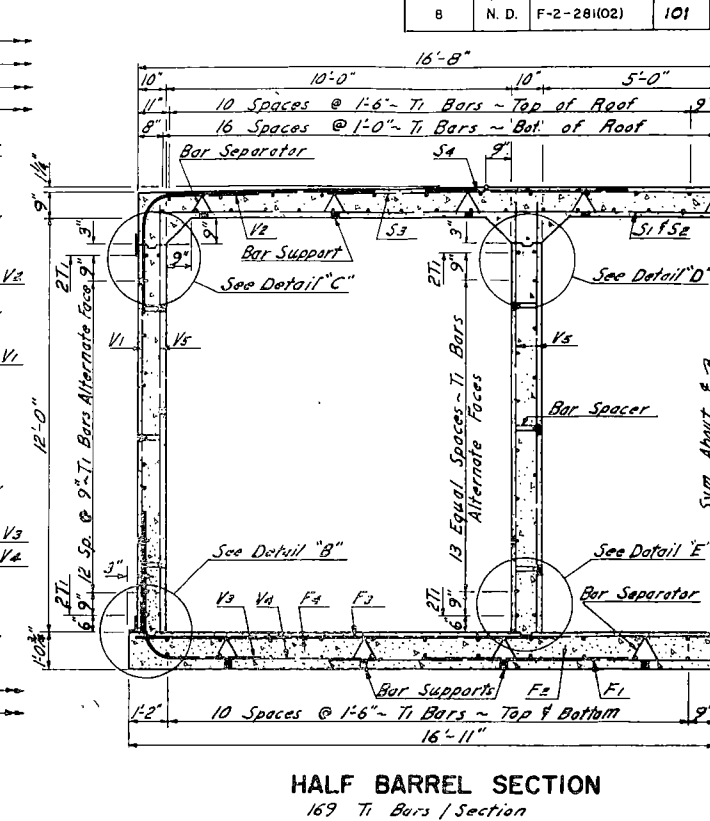 8 N. D. F-2-281(02) 101
16'-8"
10" 10'-0" 10" 5'-0"
11" 10 Spaces @ 1'-6" ~ T1 Bars ~ Top of Roof 9"
8" 16 Spaces @ 1'-0" ~ T1 Bars ~ Bot. of Roof
Bar Separator S4 9"
1¼"
9"
3" 9" V2 Bar Support S3 3" S1 & S2
9"
V2 2T1 9" See Detail "C" 2T1 9" See Detail "D"
V1 V1 V5 V5
12'-0"
12 Sp. @ 9" ~ T1 Bars Alternate Face
13 Equal Spaces ~ T1 Bars
Alternate Faces
Bar Spacer
Sym. About
V3
V4
3" See Detail "B" See Detail "E"
2T1 6" 9" V3 V4 F4 F3 2T1 6" 9" Bar Separator
1'-0¾"
Bar Supports F2 F1
1'-2" 10 Spaces @ 1'-6" ~ T1 Bars ~ Top & Bottom 9"
16'-11"
HALF BARREL SECTION
169 T1 Bars / Section